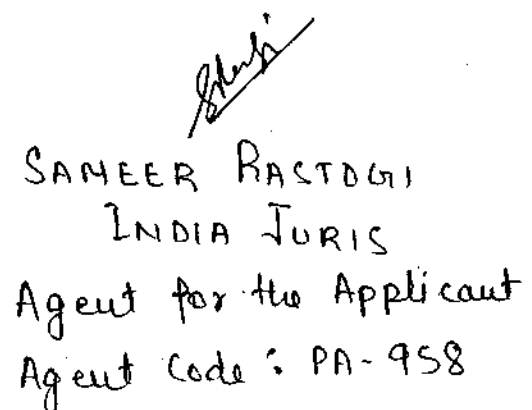 SAMEER RASTOGI
INDIA JURIS
Agent for the Applicant
Agent Code : PA-958